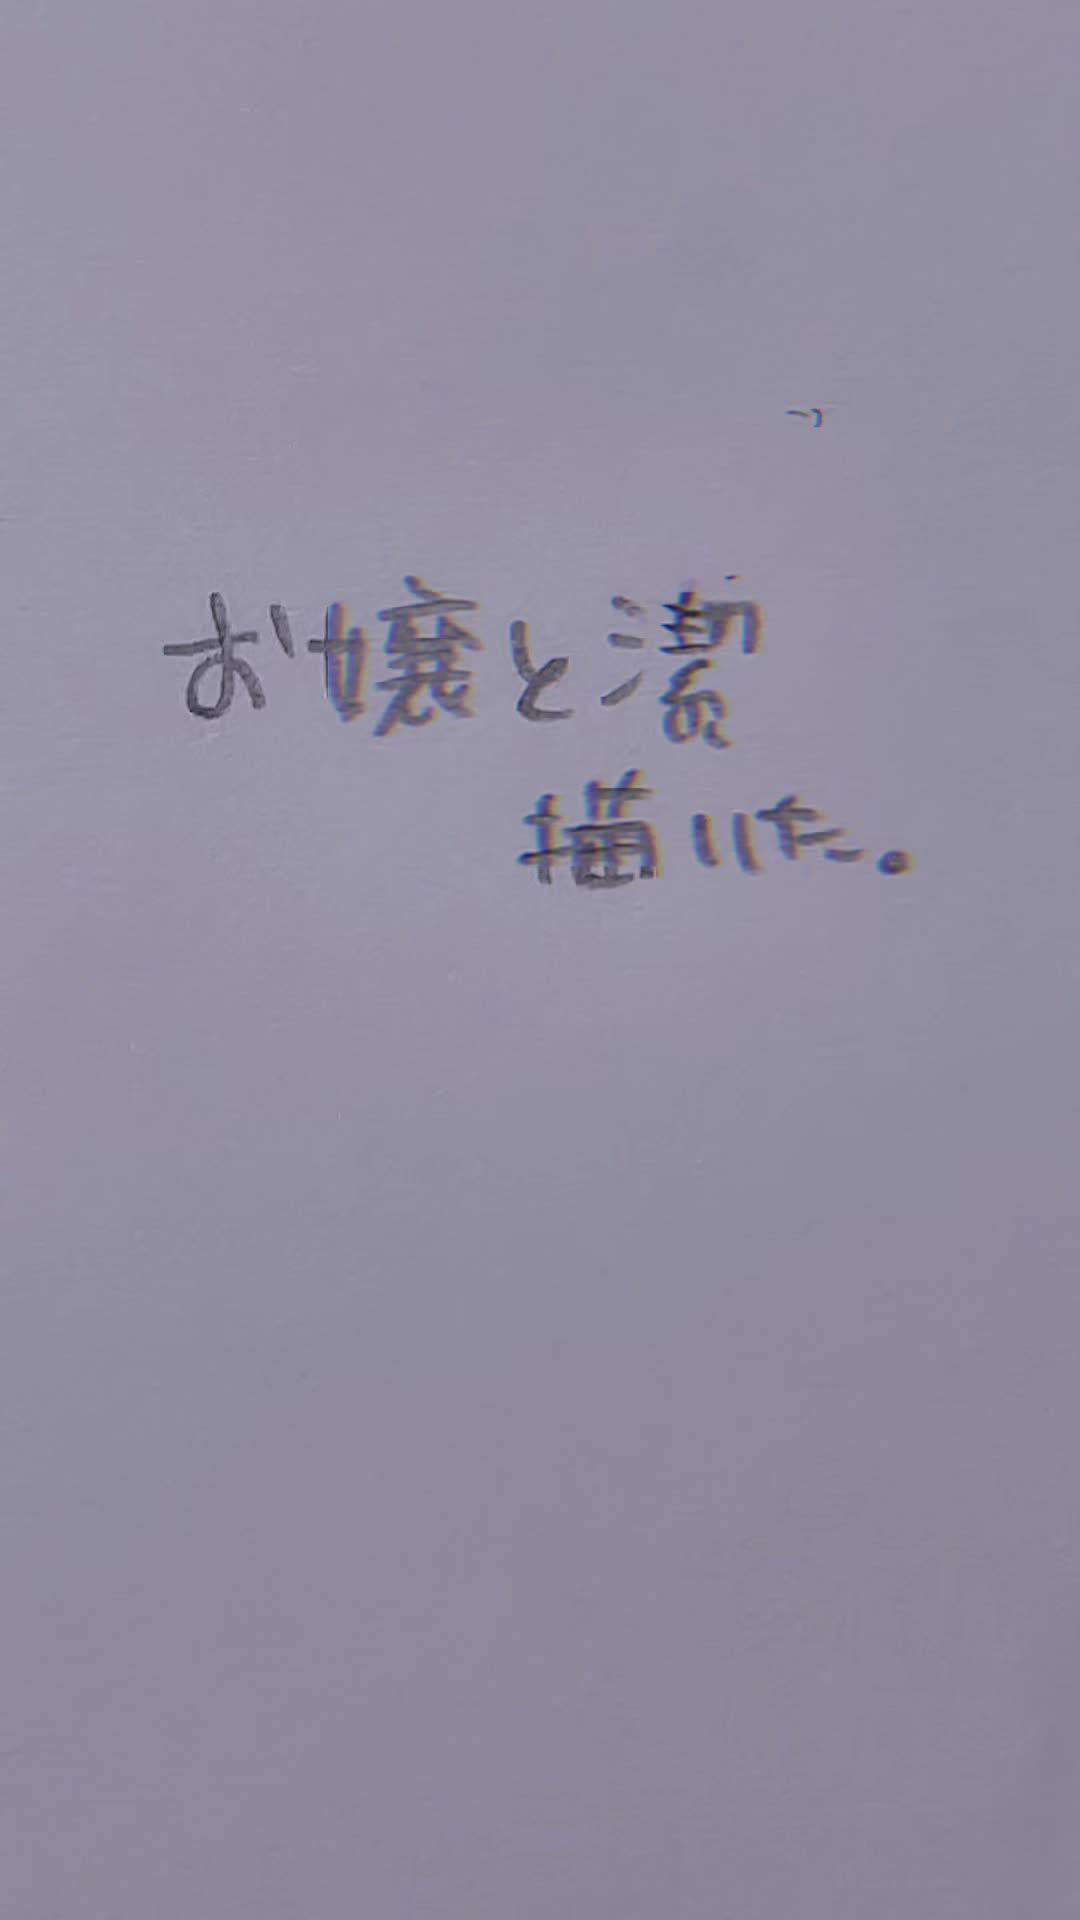 お嬢と潔
描いた。